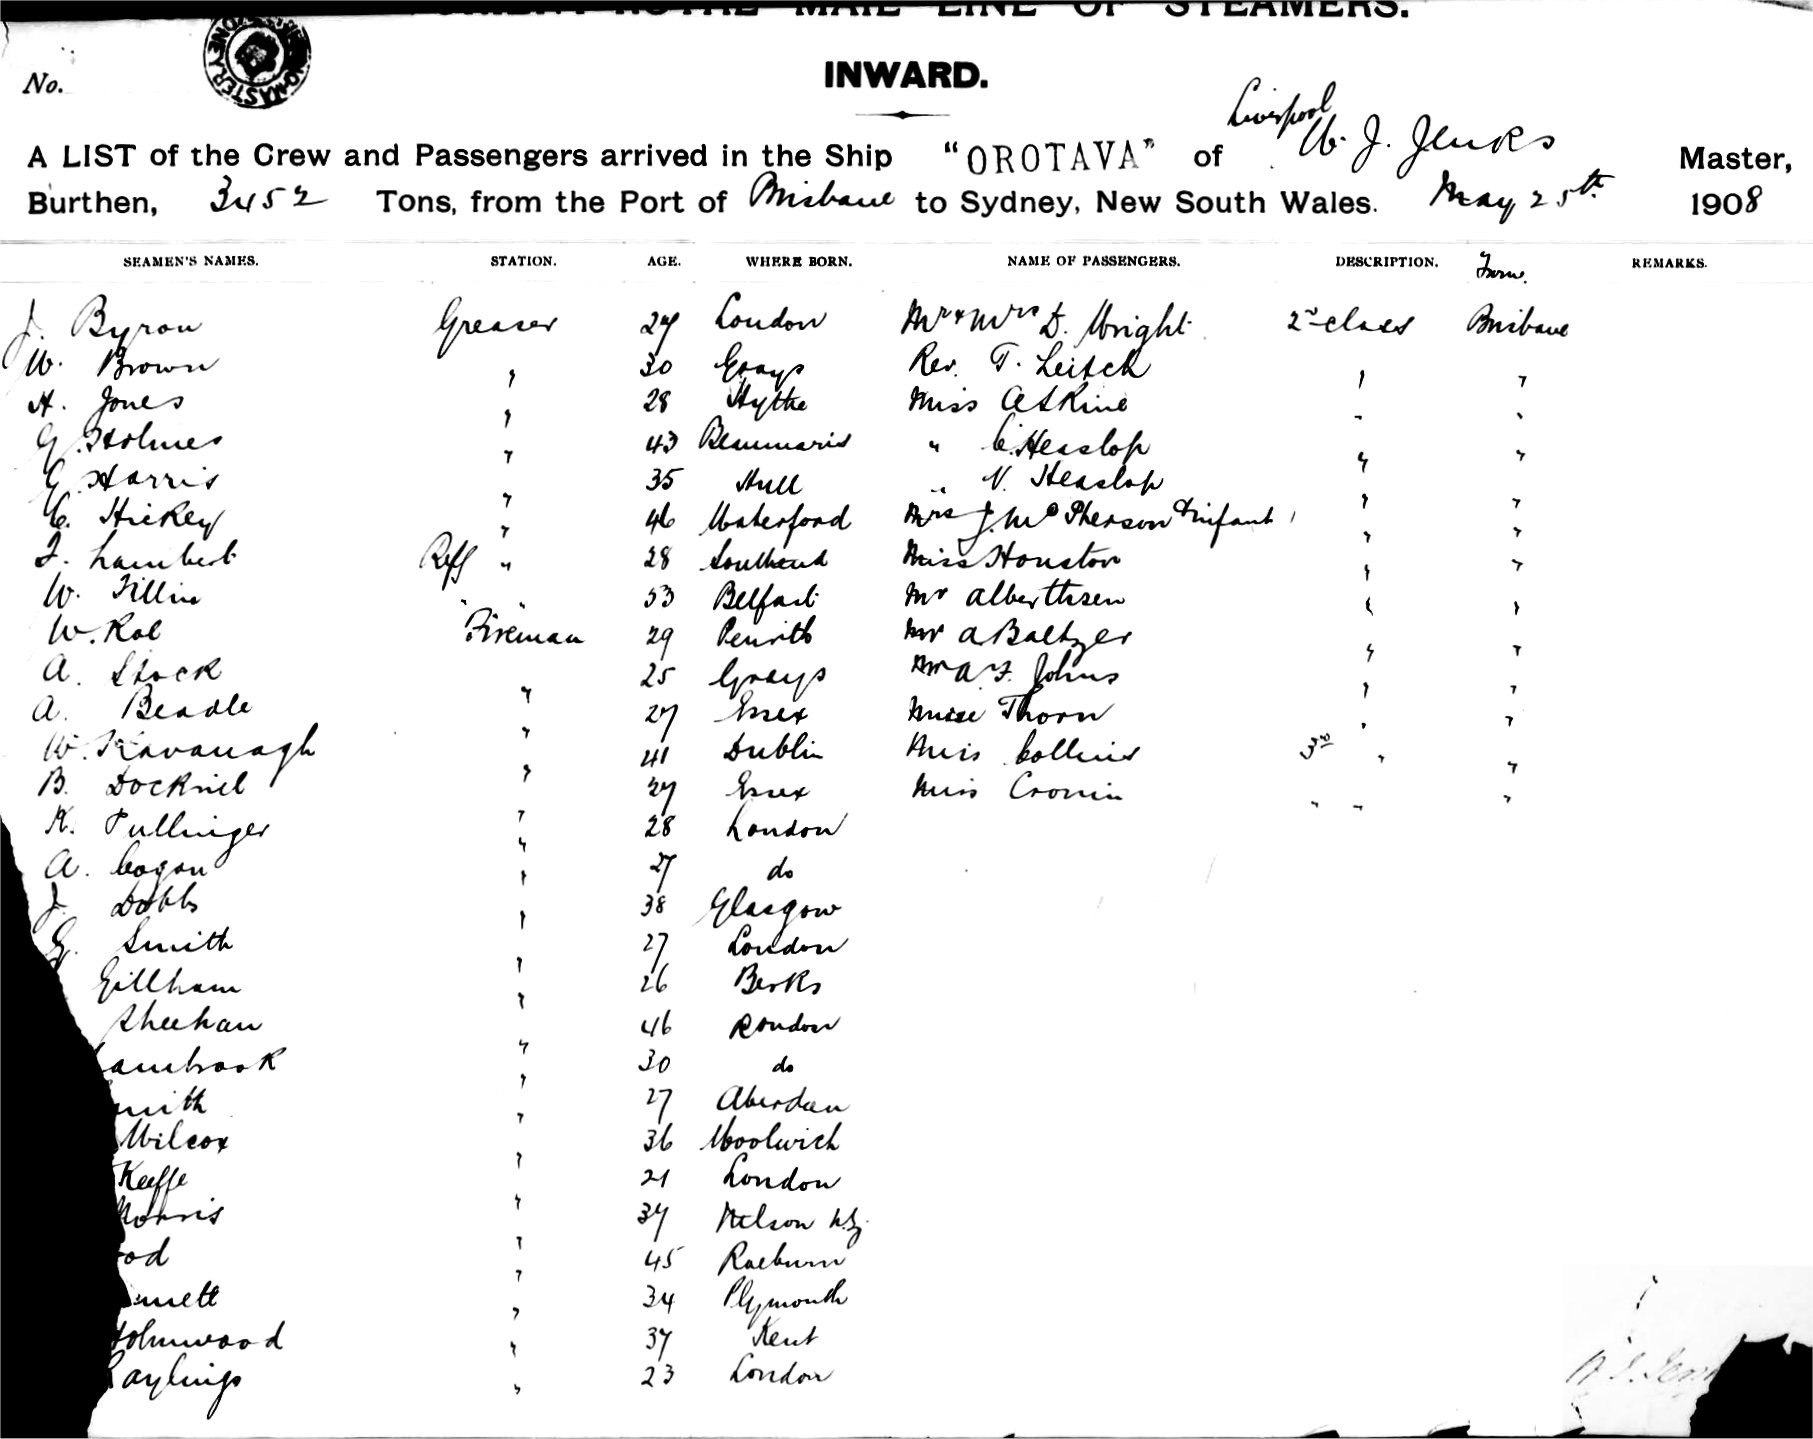 ORIENT-ROYAL MAIL LINE OF STEAMERS.
No.
INWARD.
Liverpool
A LIST of the Crew and Passengers arrived in the Ship "OROTAVA" of W. J. Jenks Master,
Burthen, 3452 Tons, from the Port of Brisbane to Sydney, New South Wales. May 25th 1908
SEAMEN'S NAMES. STATION. AGE. WHERE BORN. NAME OF PASSENGERS. DESCRIPTION. From. REMARKS.
J. Byron Greaser 27 London Mr & Mrs D. Wright 2nd class Brisbane
W. Brown " 30 Grays Rev. T. Leitch " "
H. Jones " 28 Hythe Miss Askine " "
G. Holmes " 43 Beaumaris " C. Heaslop " "
G. Harris " 35 Hull " V. Heaslop " "
C. Hickey " 46 Waterford Mrs J. McPherson & infant " "
F. Lambert Reff " 28 Southend Miss Houston " "
W. Tillin " " 53 Belfast Mr Alberthsen " "
W. Roe Fireman 29 Penrith Mr A Baltzer " "
A. Stock " 25 Grays Mr A. F. Johns " "
A. Beadle " 27 Essex Miss Thorn " "
W. Kavanagh " 41 Dublin Miss Collins 3rd " "
B. Docknil " 27 Essex Miss Cronin " " "
K. Pullinger " 28 London
A. Cogan " 27 do
J. Dobbs " 38 Glasgow
G. Smith " 27 London
Gillham " 26 Berks
Sheehan " 46 London
ambrook " 30 do
mith " 27 Aberdeen
Wilcox " 36 Woolwich
Keeffe " 21 London
Morris " 37 Nelson N.Z.
od " 45 Raeburn
nnett " 34 Plymouth
Holmwood " 37 Kent
Raylings " 23 London